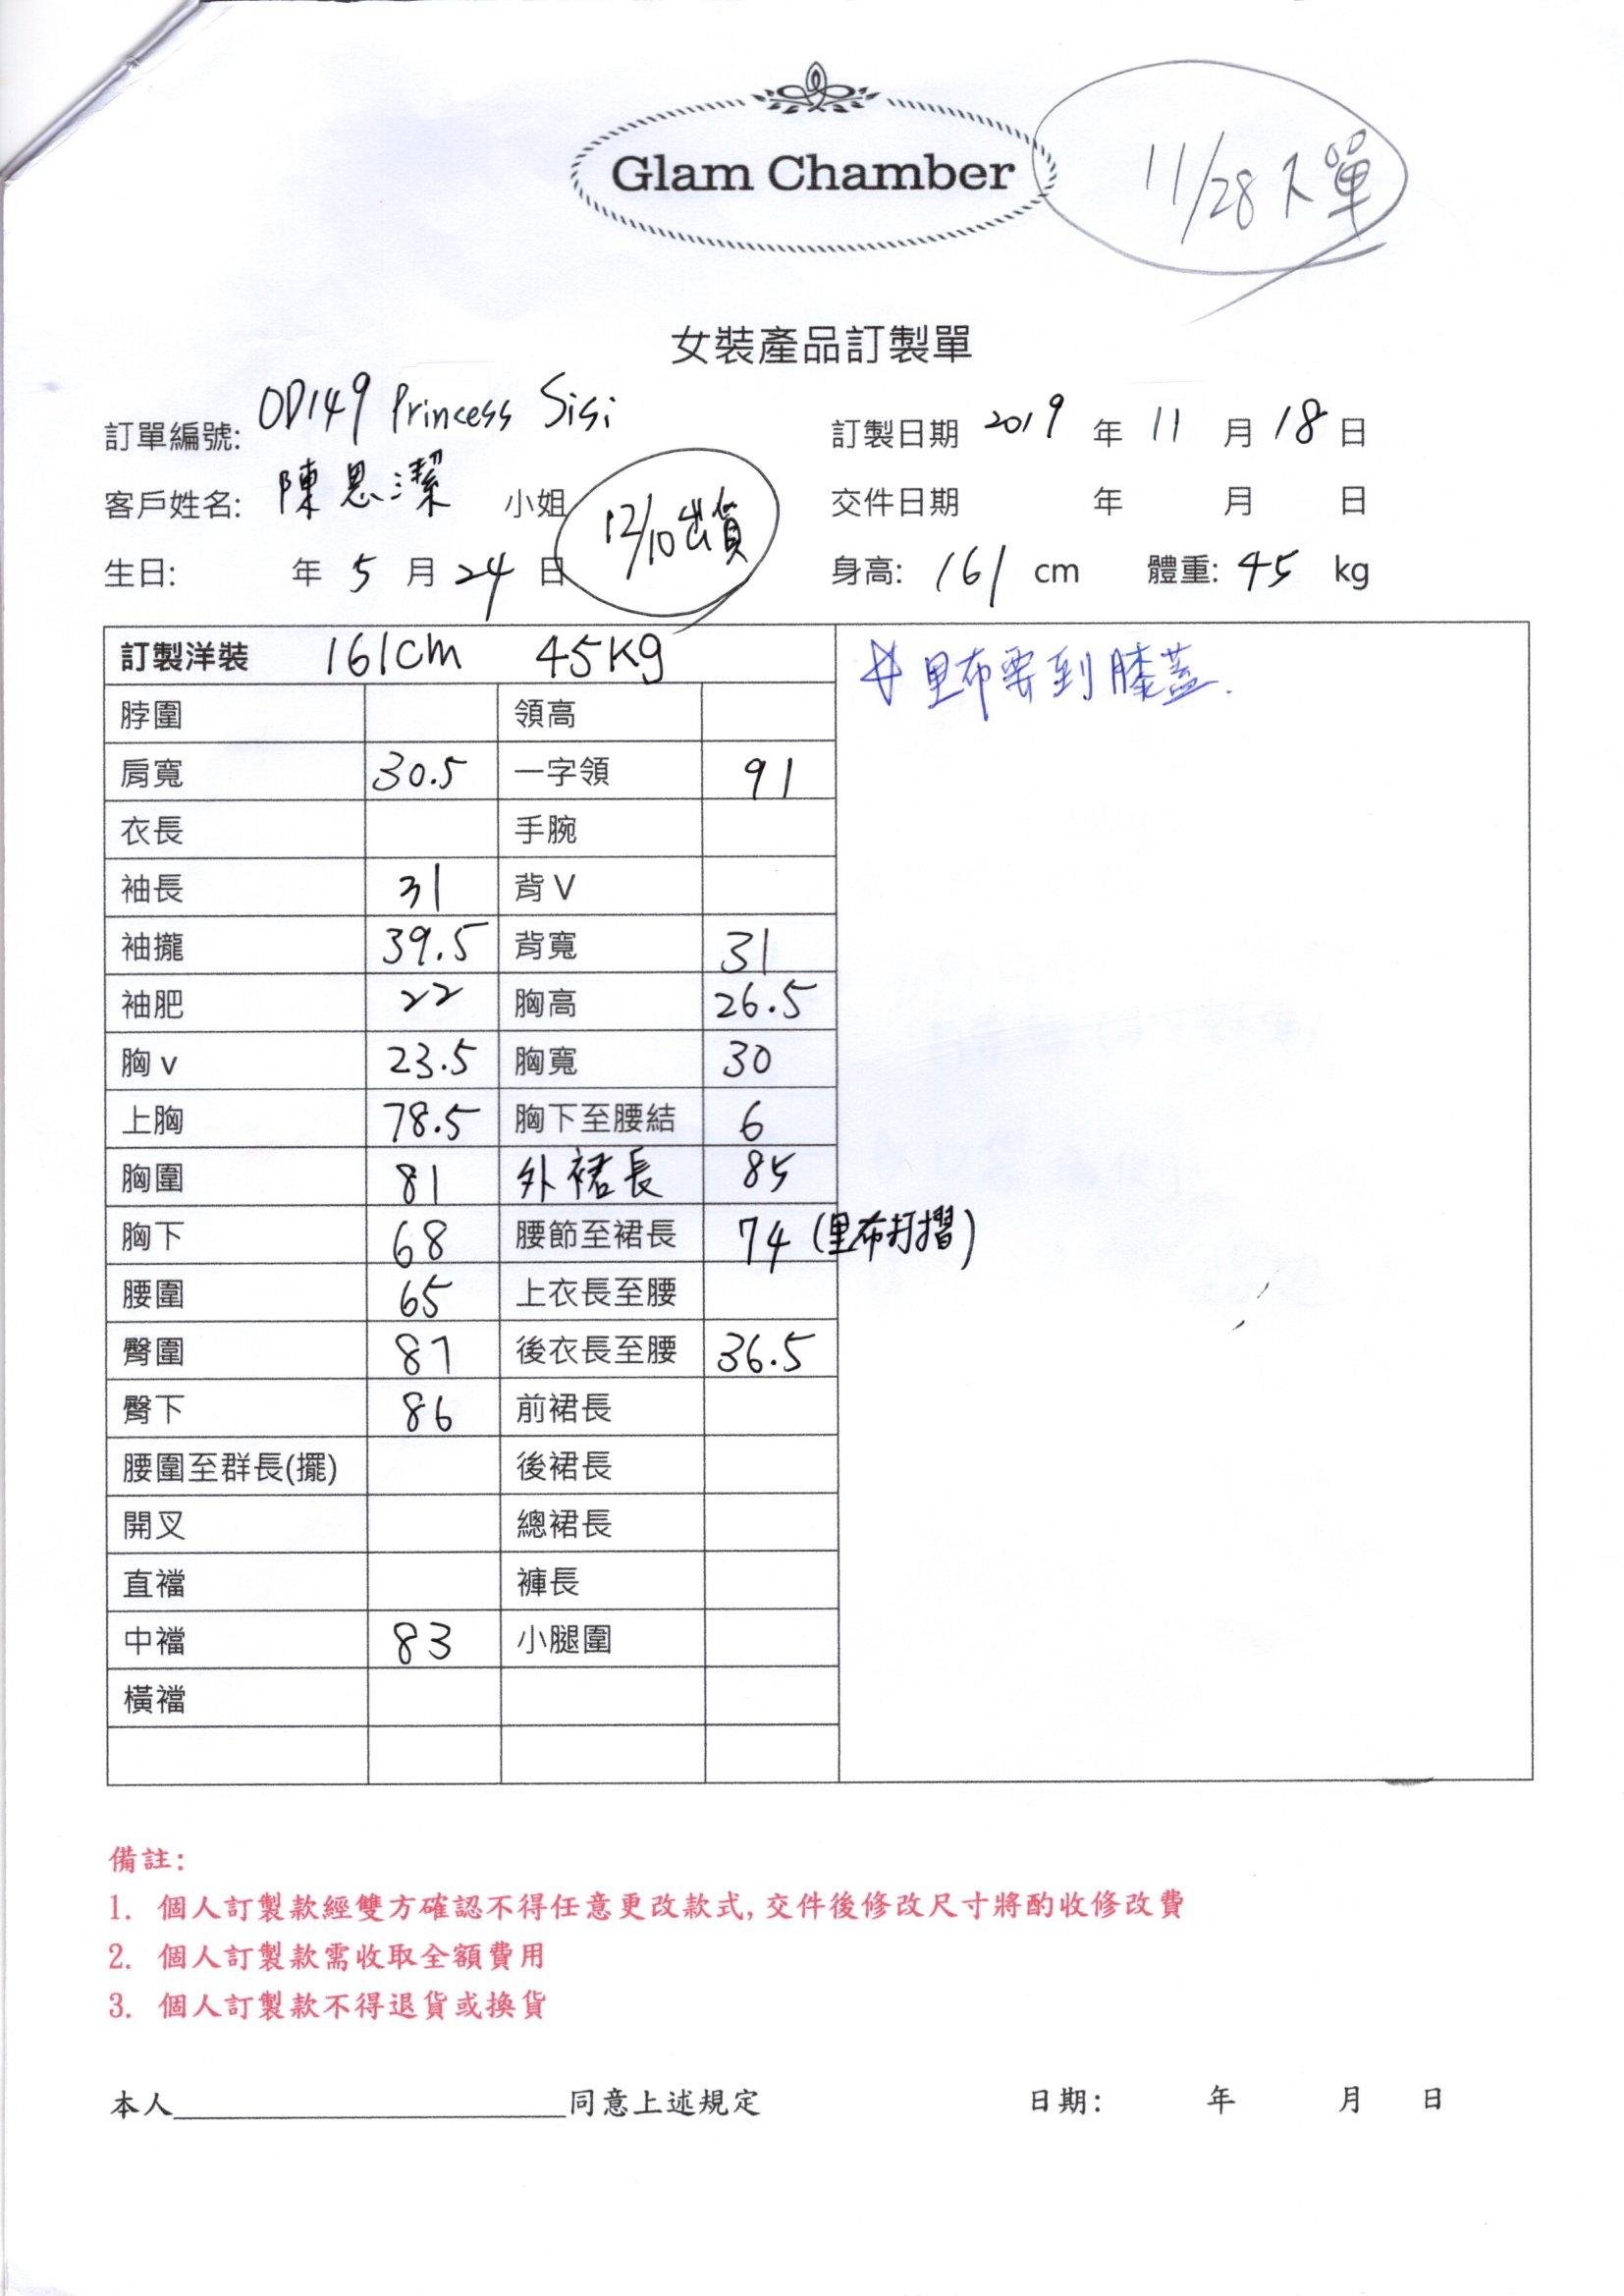 Glam Chamber
11/28下單
女裝產品訂製單
訂單編號: OD149 Princess Sisi
訂製日期 2019 年 11 月 18 日
客戶姓名: 陳思潔 小姐
12/10出貨
交件日期 年 月 日
生日: 年 5 月 24 日
身高: 161 cm 體重: 45 kg
訂製洋裝 161cm 45kg
#里布要到膝蓋.
脖圍 領高
肩寬 30.5 一字領 91
衣長 手腕
袖長 31 背V
袖攏 39.5 背寬 31
袖肥 22 胸高 26.5
胸v 23.5 胸寬 30
上胸 78.5 胸下至腰結 6
胸圍 81 外裙長 85
胸下 68 腰節至裙長 74 (里布打摺)
腰圍 65 上衣長至腰
臀圍 87 後衣長至腰 36.5
臀下 86 前裙長
腰圍至群長(擺) 後裙長
開叉 總裙長
直襠 褲長
中襠 83 小腿圍
橫襠
備註:
1. 個人訂製款經雙方確認不得任意更改款式, 交件後修改尺寸將酌收修改費
2. 個人訂製款需收取全額費用
3. 個人訂製款不得退貨或換貨
本人____________________同意上述規定
日期: 年 月 日